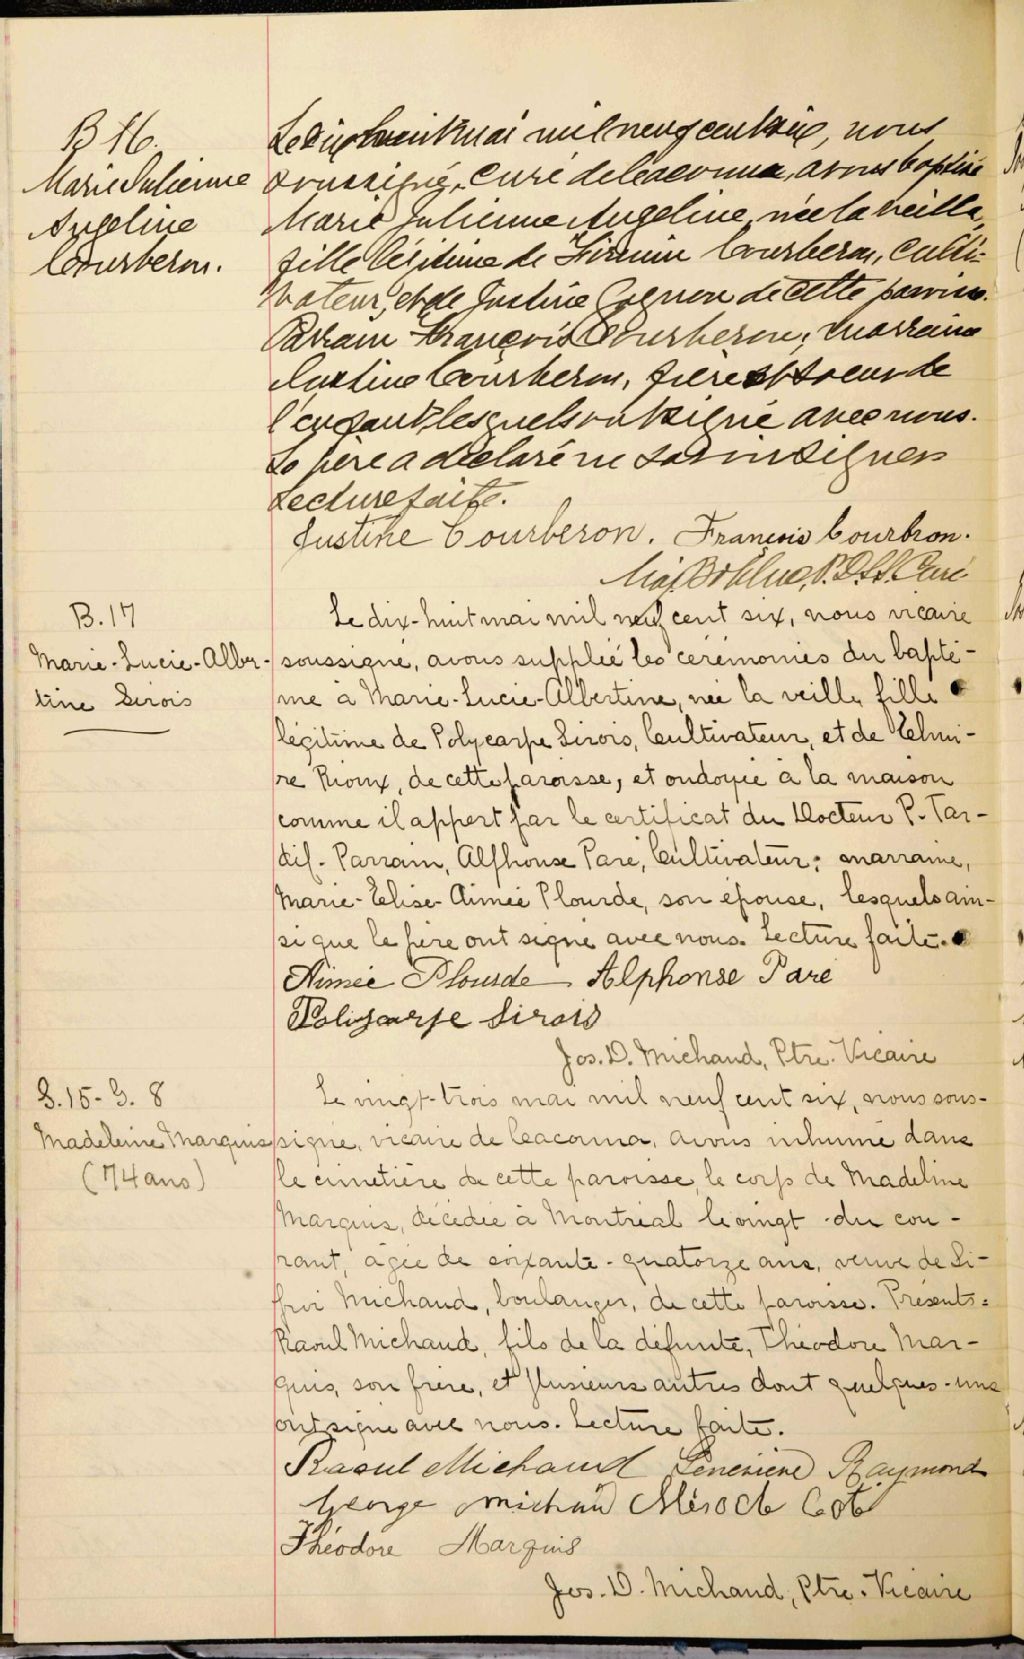 B 16.
Marie Julienne
Angeline
Courberon.
Le dix huit mai mil neuf cent six, nous
soussigné, curé de Cacouna, avons baptisé
Marie Julienne Angeline, née la veille,
fille légitime de Firmin Courberon, culti-
vateur, et de Justine Gagnon de cette paroisse.
Parrain François Courberon; marraine
Justine Courberon, frère et soeur de
l'enfant, lesquels ont signé avec nous.
Le père a déclaré ne savoir signer
Lecture faite.
Justine Courberon. François Courbron.
Ptre. Curé
B.17
Marie-Lucie-Alber-
tine Sirois
Le dix-huit mai mil neuf cent six, nous vicaire
soussigné, avons supplié les cérémonies du baptê-
me à Marie-Lucie-Albertine, née la veille, fille
légitime de Polycarpe Sirois, Cultivateur, et de Elmi-
re Rioux, de cette paroisse, et ondoyée à la maison
comme il appert par le certificat du Docteur P. Tar-
dif. Parrain, Alphonse Paré, Cultivateur; marraine,
Marie-Elise-Aimée Plourde, son épouse, lesquels ain-
si que le père ont signé avec nous. Lecture faite.
Aimée Plourde Alphonse Paré
Polycarpe Sirois
Jos. D. Michaud, Ptre. Vicaire
S.15-G. 8
Madeleine Marquis
(74 ans)
Le vingt-trois mai mil neuf cent six, nous sous-
signé, vicaire de Cacouna, avons inhumé dans
le cimetière de cette paroisse, le corps de Madeline
Marquis, décédée à Montréal le vingt du cou-
rant, âgée de soixante-quatorze ans, veuve de Si-
froi Michaud, boulanger, de cette paroisse. Présents:
Raoul Michaud, fils de la défunte, Théodore Mar-
quis, son frère, et plusieurs autres dont quelques-uns
ont signé avec nous. Lecture faite.
Raoul Michaud Geneviève Raymond
George Michau Côté
Théodore Marquis
Jos. D. Michaud, Ptre. Vicaire